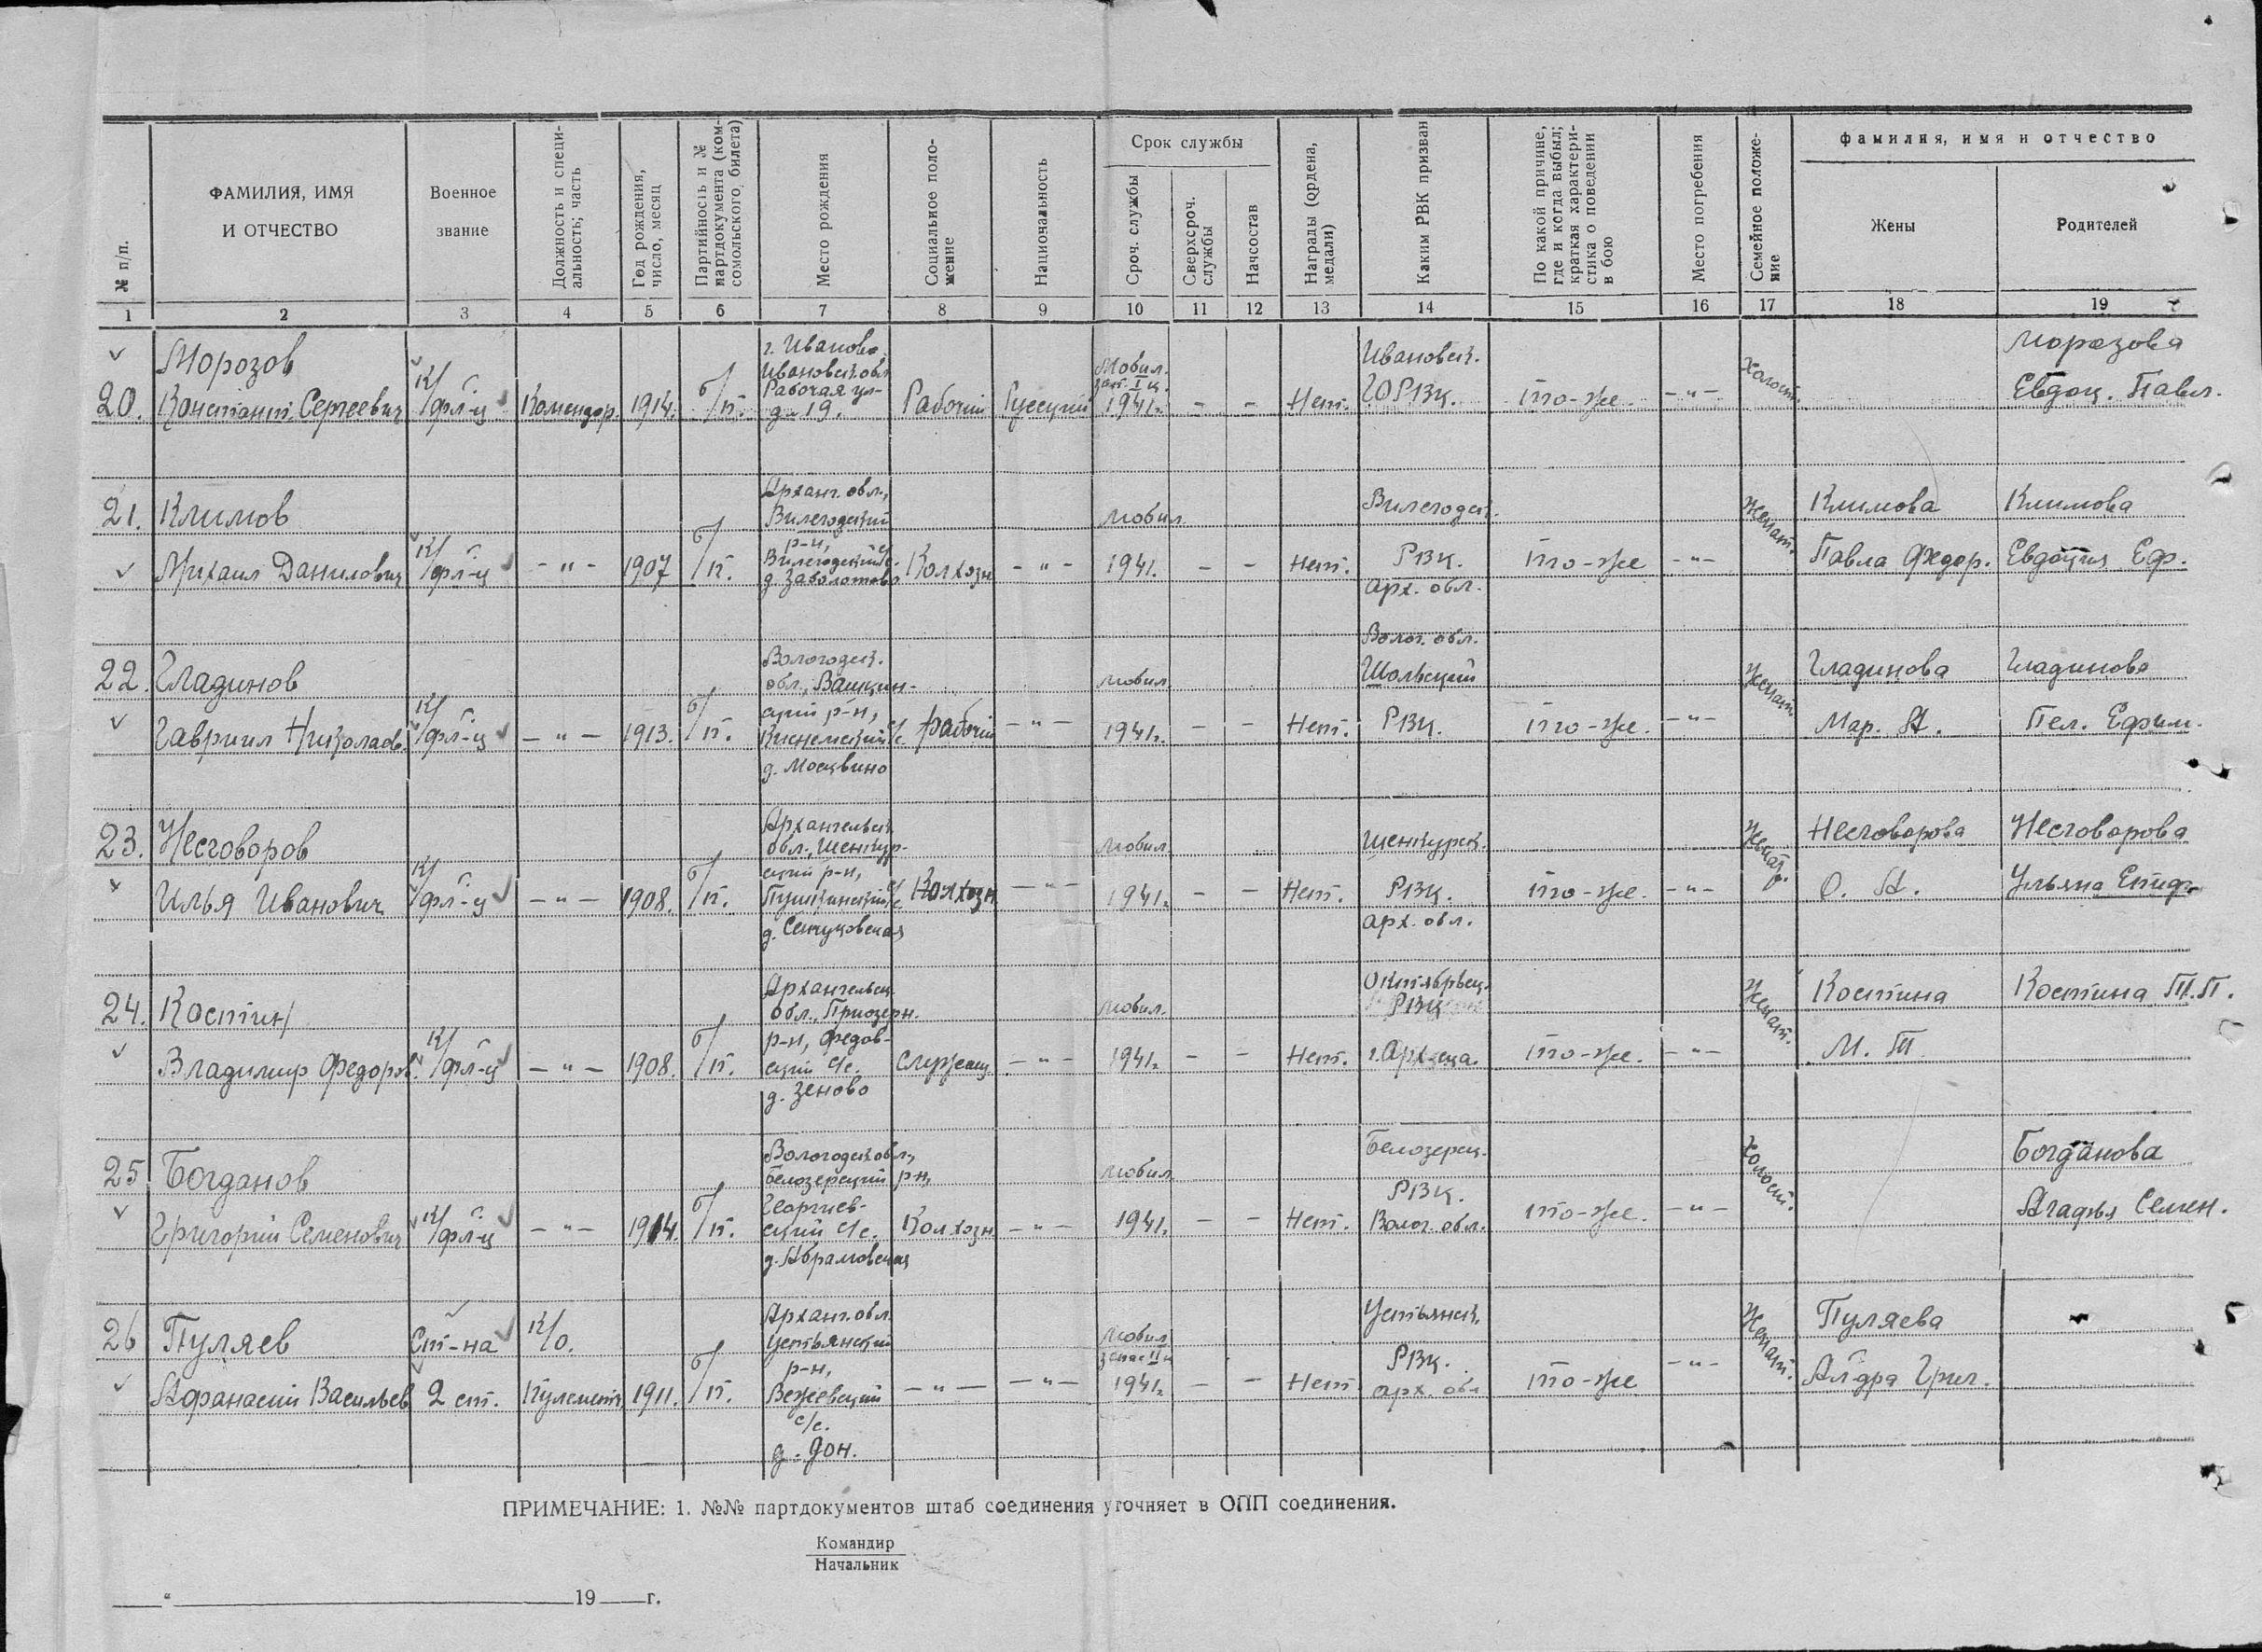 № п/п.
ФАМИЛИЯ, ИМЯ
И ОТЧЕСТВО
Военное
звание
Должность и специ-
альность; часть
Год рождения,
число, месяц
Партийность и №
партдокумента (ком-
сомольского билета)
Место рождения
Социальное поло-
жение
Национальность
Срок службы
Сроч. службы
Сверхсроч.
службы
Начсостав
Награды (ордена,
медали)
Каким РВК призван
По какой причине,
где и когда выбыл;
краткая характери-
стика о поведении
в бою
Место погребения
Семейное положе-
ние
фамилия, имя и отчество
Жены
Родителей
1 2 3 4 5 6 7 8 9 10 11 12 13 14 15 16 17 18 19
20. Морозов
Констант. Сергеевич
К/фл-ц
Комендор.
1914.
б/п.
г. Иваново
Ивановск. обл
Рабочая ул-
д. 19.
Рабочий
Русский
Мобил.
зап. I к.
1941г.
– –
Нет.
Ивановск.
ГОРВК.
то-же.
-"-
Холост.
Морозова
Евдок. Павл.
21. Климов
Михаил Данилович
К/фл-ц
-"-
1907
б/п.
Арханг. обл.,
Вилегодский
р-н,
Вилегодский с/с.
д. Заболотово
Колхозн
-"-
мобил.
1941.
– –
Нет.
Вилегодск.
РВК.
арх. обл.
то-же
-"-
Женат.
Климова
Павла Федор.
Климова
Евдокия Еф.
22. Гладинов
Гавриил Николаев.
К/фл-ц
-"-
1913.
б/п.
Вологодск.
обл., Вашкин-
ский р-н,
Киснемский с/с.
д. Москвино
рабочий
-"-
мобил.
1941г.
– –
Нет.
Волог. обл.
Шольский
РВК.
то-же.
-"-
Женат
Гладинова
Мар. А.
Гладинова
Пел. Ефим.
23. Несговоров
Илья Иванович
К/фл-ц
-"-
1908.
б/п.
Архангельск.
обл., Шенкур-
ский р-н,
с/с.
д. Сенчуковская
Колхозн
-"-
мобил.
1941г.
– –
Нет.
Шенкурск.
РВК.
арх. обл.
то-же.
-"-
Женат.
Несговорова
О. А.
Несговорова
Ульяна
24. Костин
Владимир Федоров.
К/фл-ц
-"-
1908.
б/п.
Архангельск.
обл., Приозерн.
р-н, Федов-
ский с/с.
д. Зеново
служащ.
-"-
мобил.
1941г.
– –
Нет.
Октябрьск.
РВК
г. Арх-ска.
то-же.
-"-
Женат.
Костина
М. Т
Костина Т.П.
25 Богданов
Григорий Семенович
К/фл-ц
-"-
1914.
б/п.
Вологодск обл.,
Белозерский р-н,
Георгиев-
ский с/с.
д. Абрамовская
Колхозн
-"-
мобил.
1941.
– –
Нет.
Белозерск.
РВК.
Волог. обл.
то-же.
-"-
Холост.
Богданова
Агафья Семен.
26 Пуляев
Афанасий Васильев
Ст-на
2 ст.
К/о.
Пулеметч
1911.
б/п.
Арханг. обл.
Устьянский
р-н,
Бежевский
с/с.
д. Дон.
-"-
-"-
мобил
запас II к
1941г.
– –
Нет
Устьянск.
РВК.
арх. обл
то-же
-"-
Женат.
Пуляева
Ал-дра Григ.
-
ПРИМЕЧАНИЕ: 1. №№ партдокументов штаб соединения уточняет в ОПП соединения.
Командир
Начальник
" 19 г.